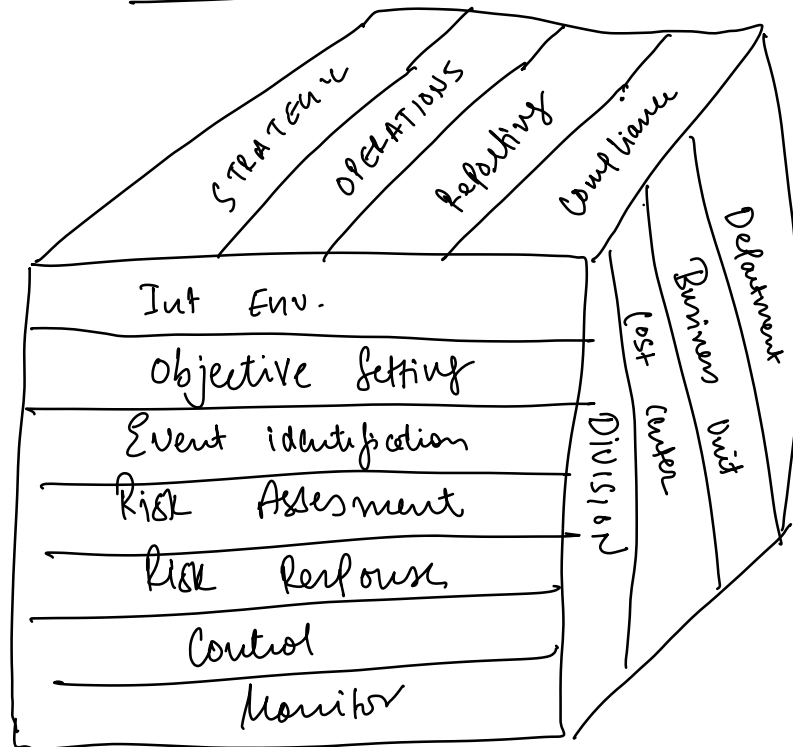 STRATEGIC
OPERATIONS
Reporting
Compliance
Int Env.
Objective Setting
Event identification
Risk Assesment
Risk Response
Control
Monitor
DIVISION
Cost Center
Business Unit
Department